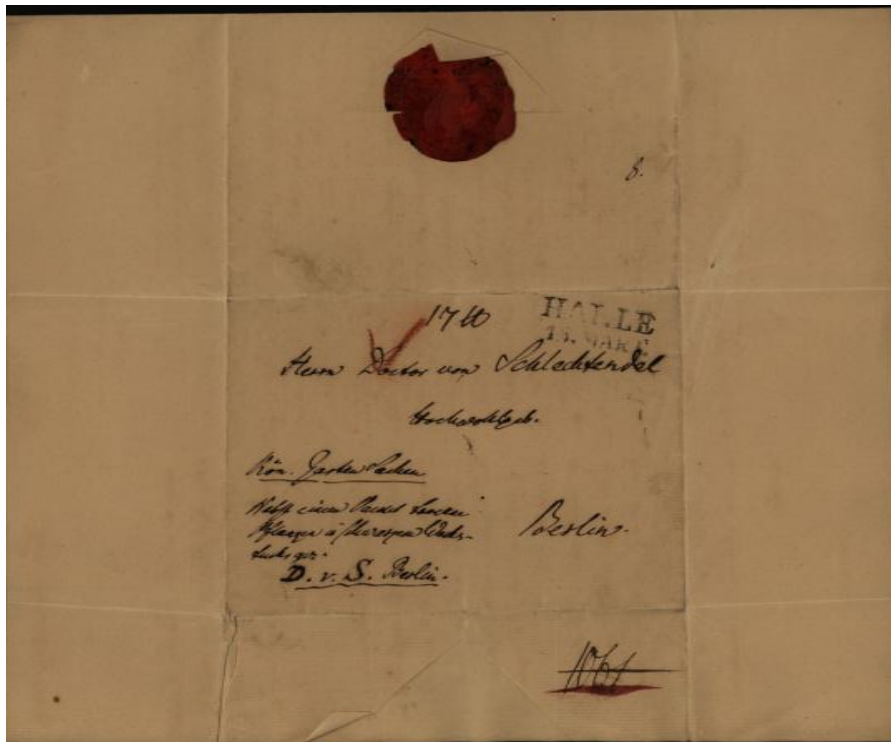 8.
HALLE
13. MART
Herrn Doctor von Schlechtendal
Hochwohlgeb.
Kön. Garten Sachen
Nebst einem Packet
Pflanzen in schwarzen Wachs-
tuche gez.
D. v. S. Berlin.
Berlin.
1061